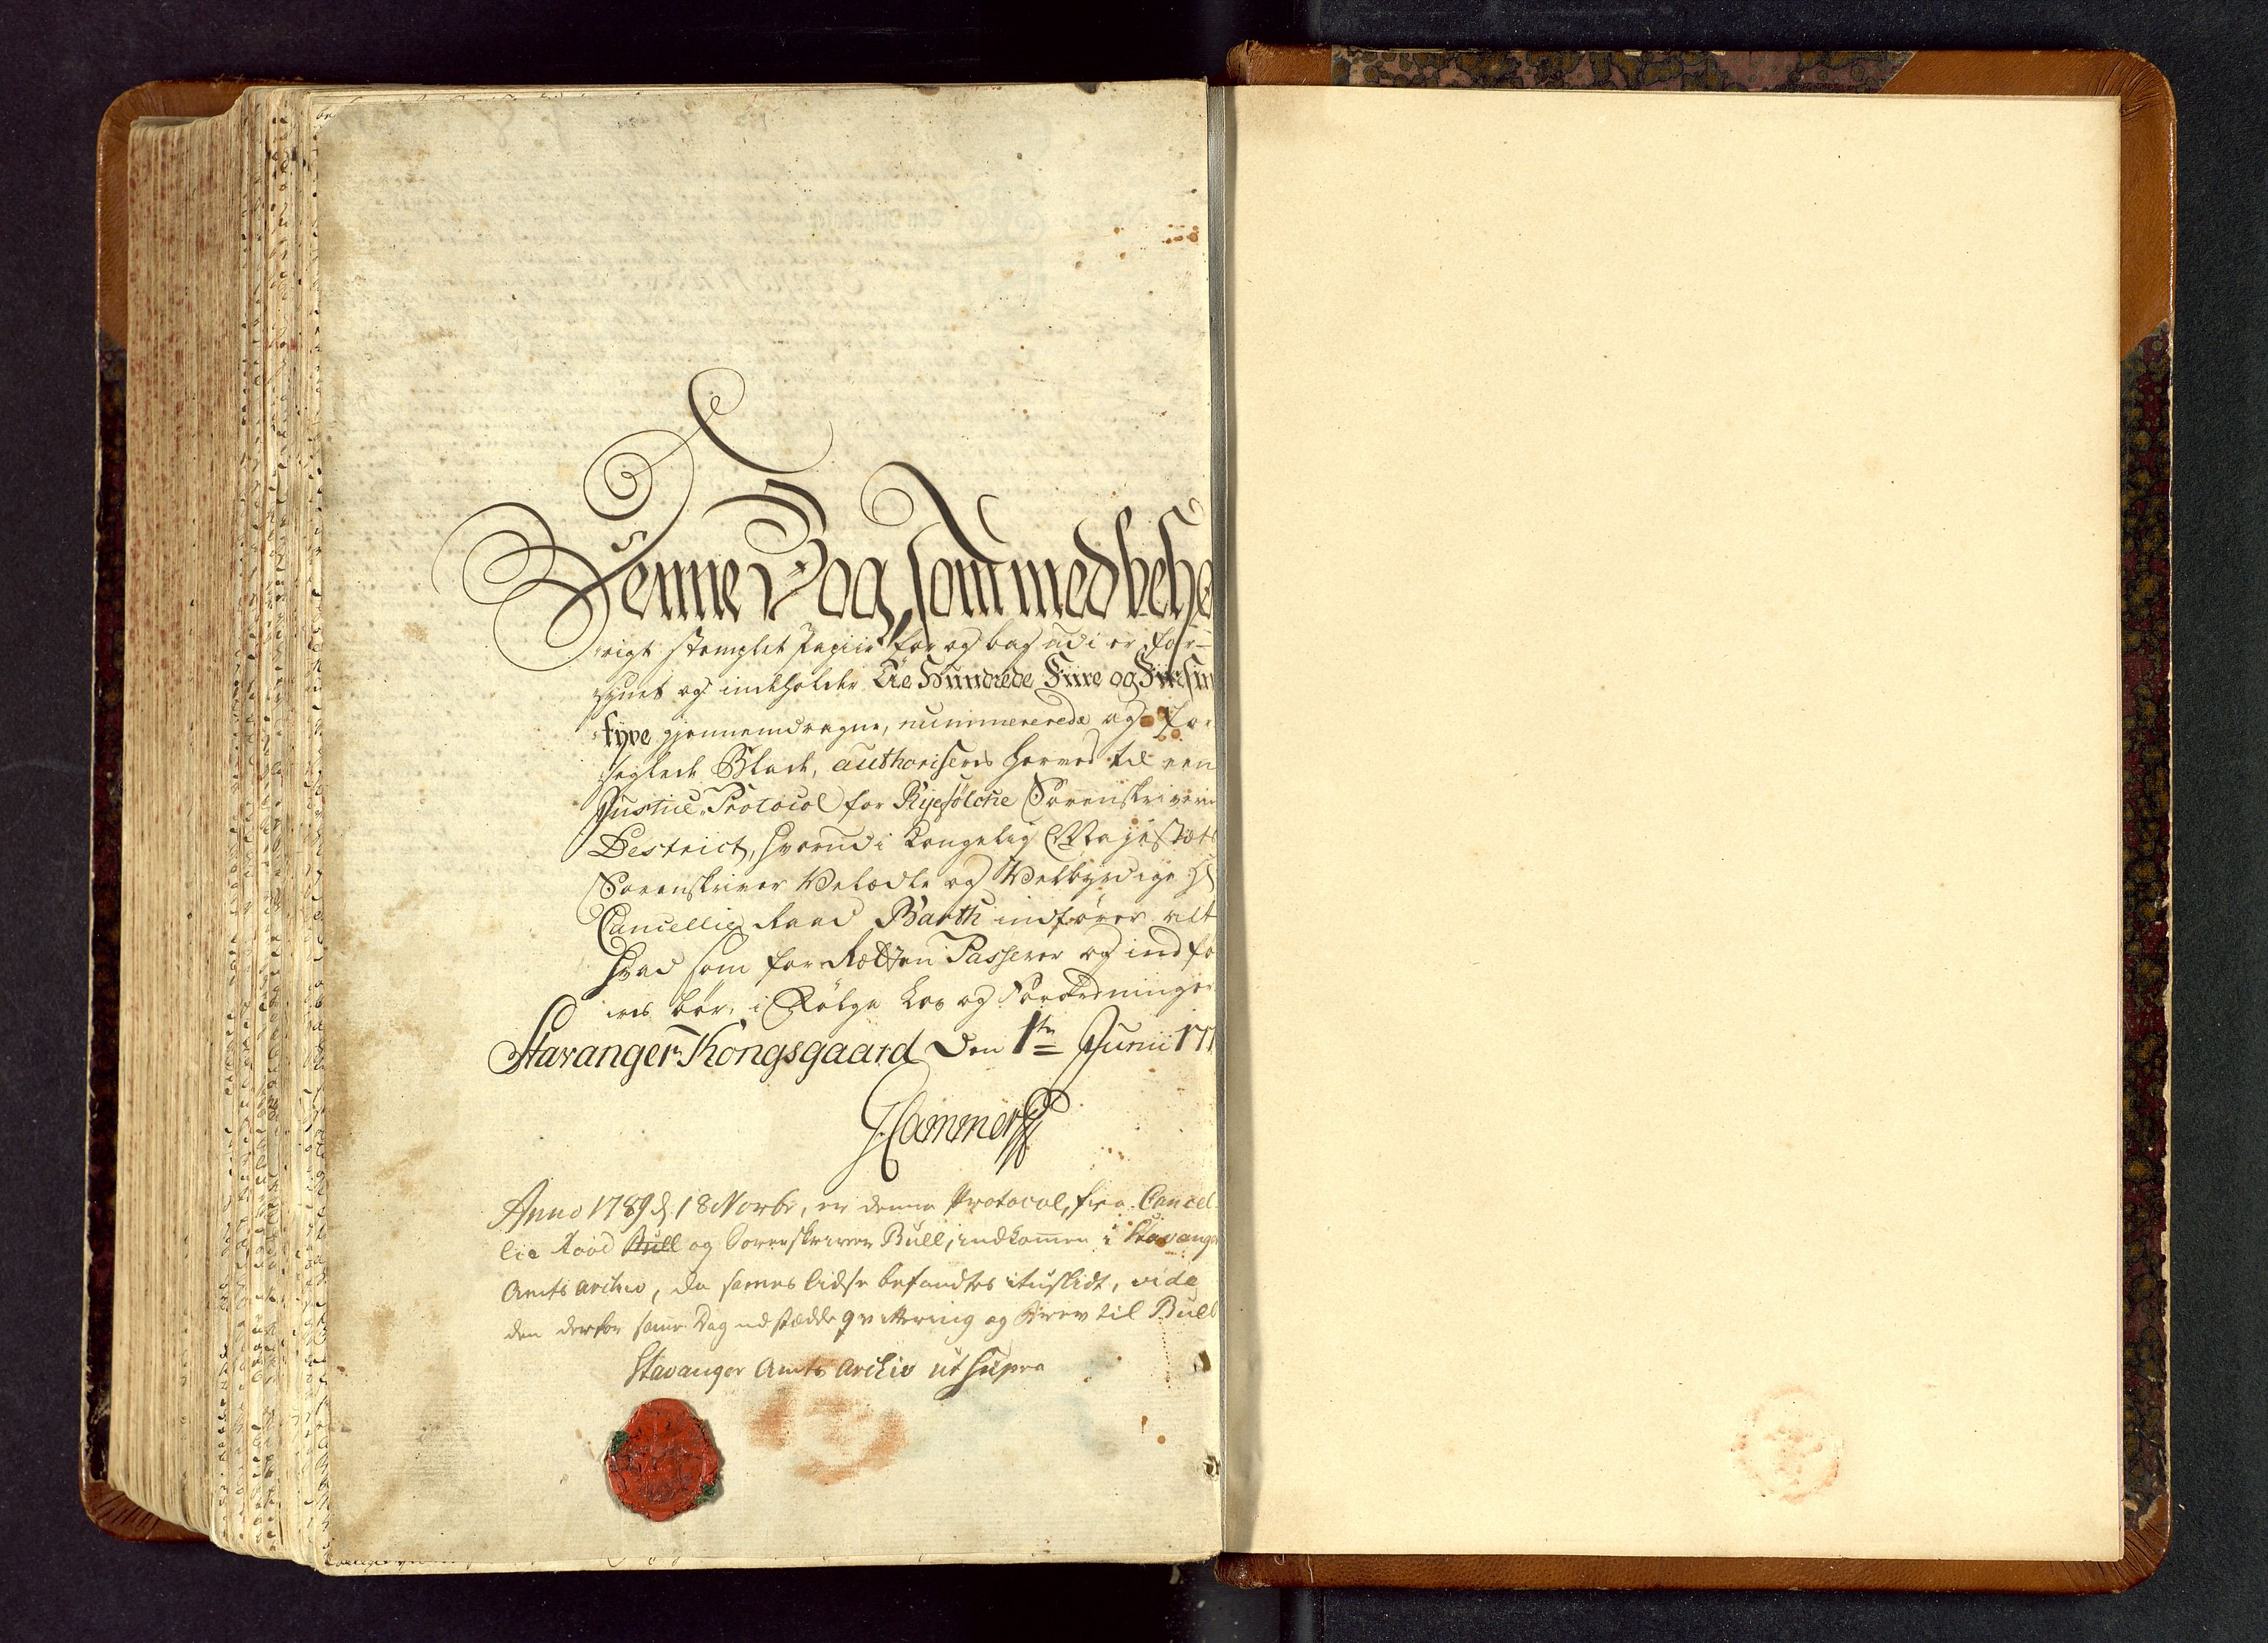 Denne Bog, som med behø
rigt stemplet Papiir for og bag udi er for-
synet og indeholder Tie Hundrede Fiire og Fiirsin
tyve gjennemdragne, nummererede og for
seglede Blade, authoriseres herved til een
Justice Protocol for Ryefölcke Sorenskriverie
Destrict, hvorudi Kongelig Majestæts
Sorenskriver Velædle og Velbyrdige Hr
Cancellie Raad Barth indfører alt
hvad som for Rætten Passerer og indfø
res bør, i Følge Lov og Forordninger
Stavanger Kongsgaard den 1te Junii 177
Hammer
Anno 1789 d. 18 Novbr, er denne Protocol, fra Cancel-
lie Raad Bull og Sorenskriver Bull, indkommen i Stavanger
Amts Archiv, da samme lidse befandtes itusliidt, vide
den derfor samme Dag udstædde Qvittering og Brev til Bull
Stavanger Amts Archiv ut supra